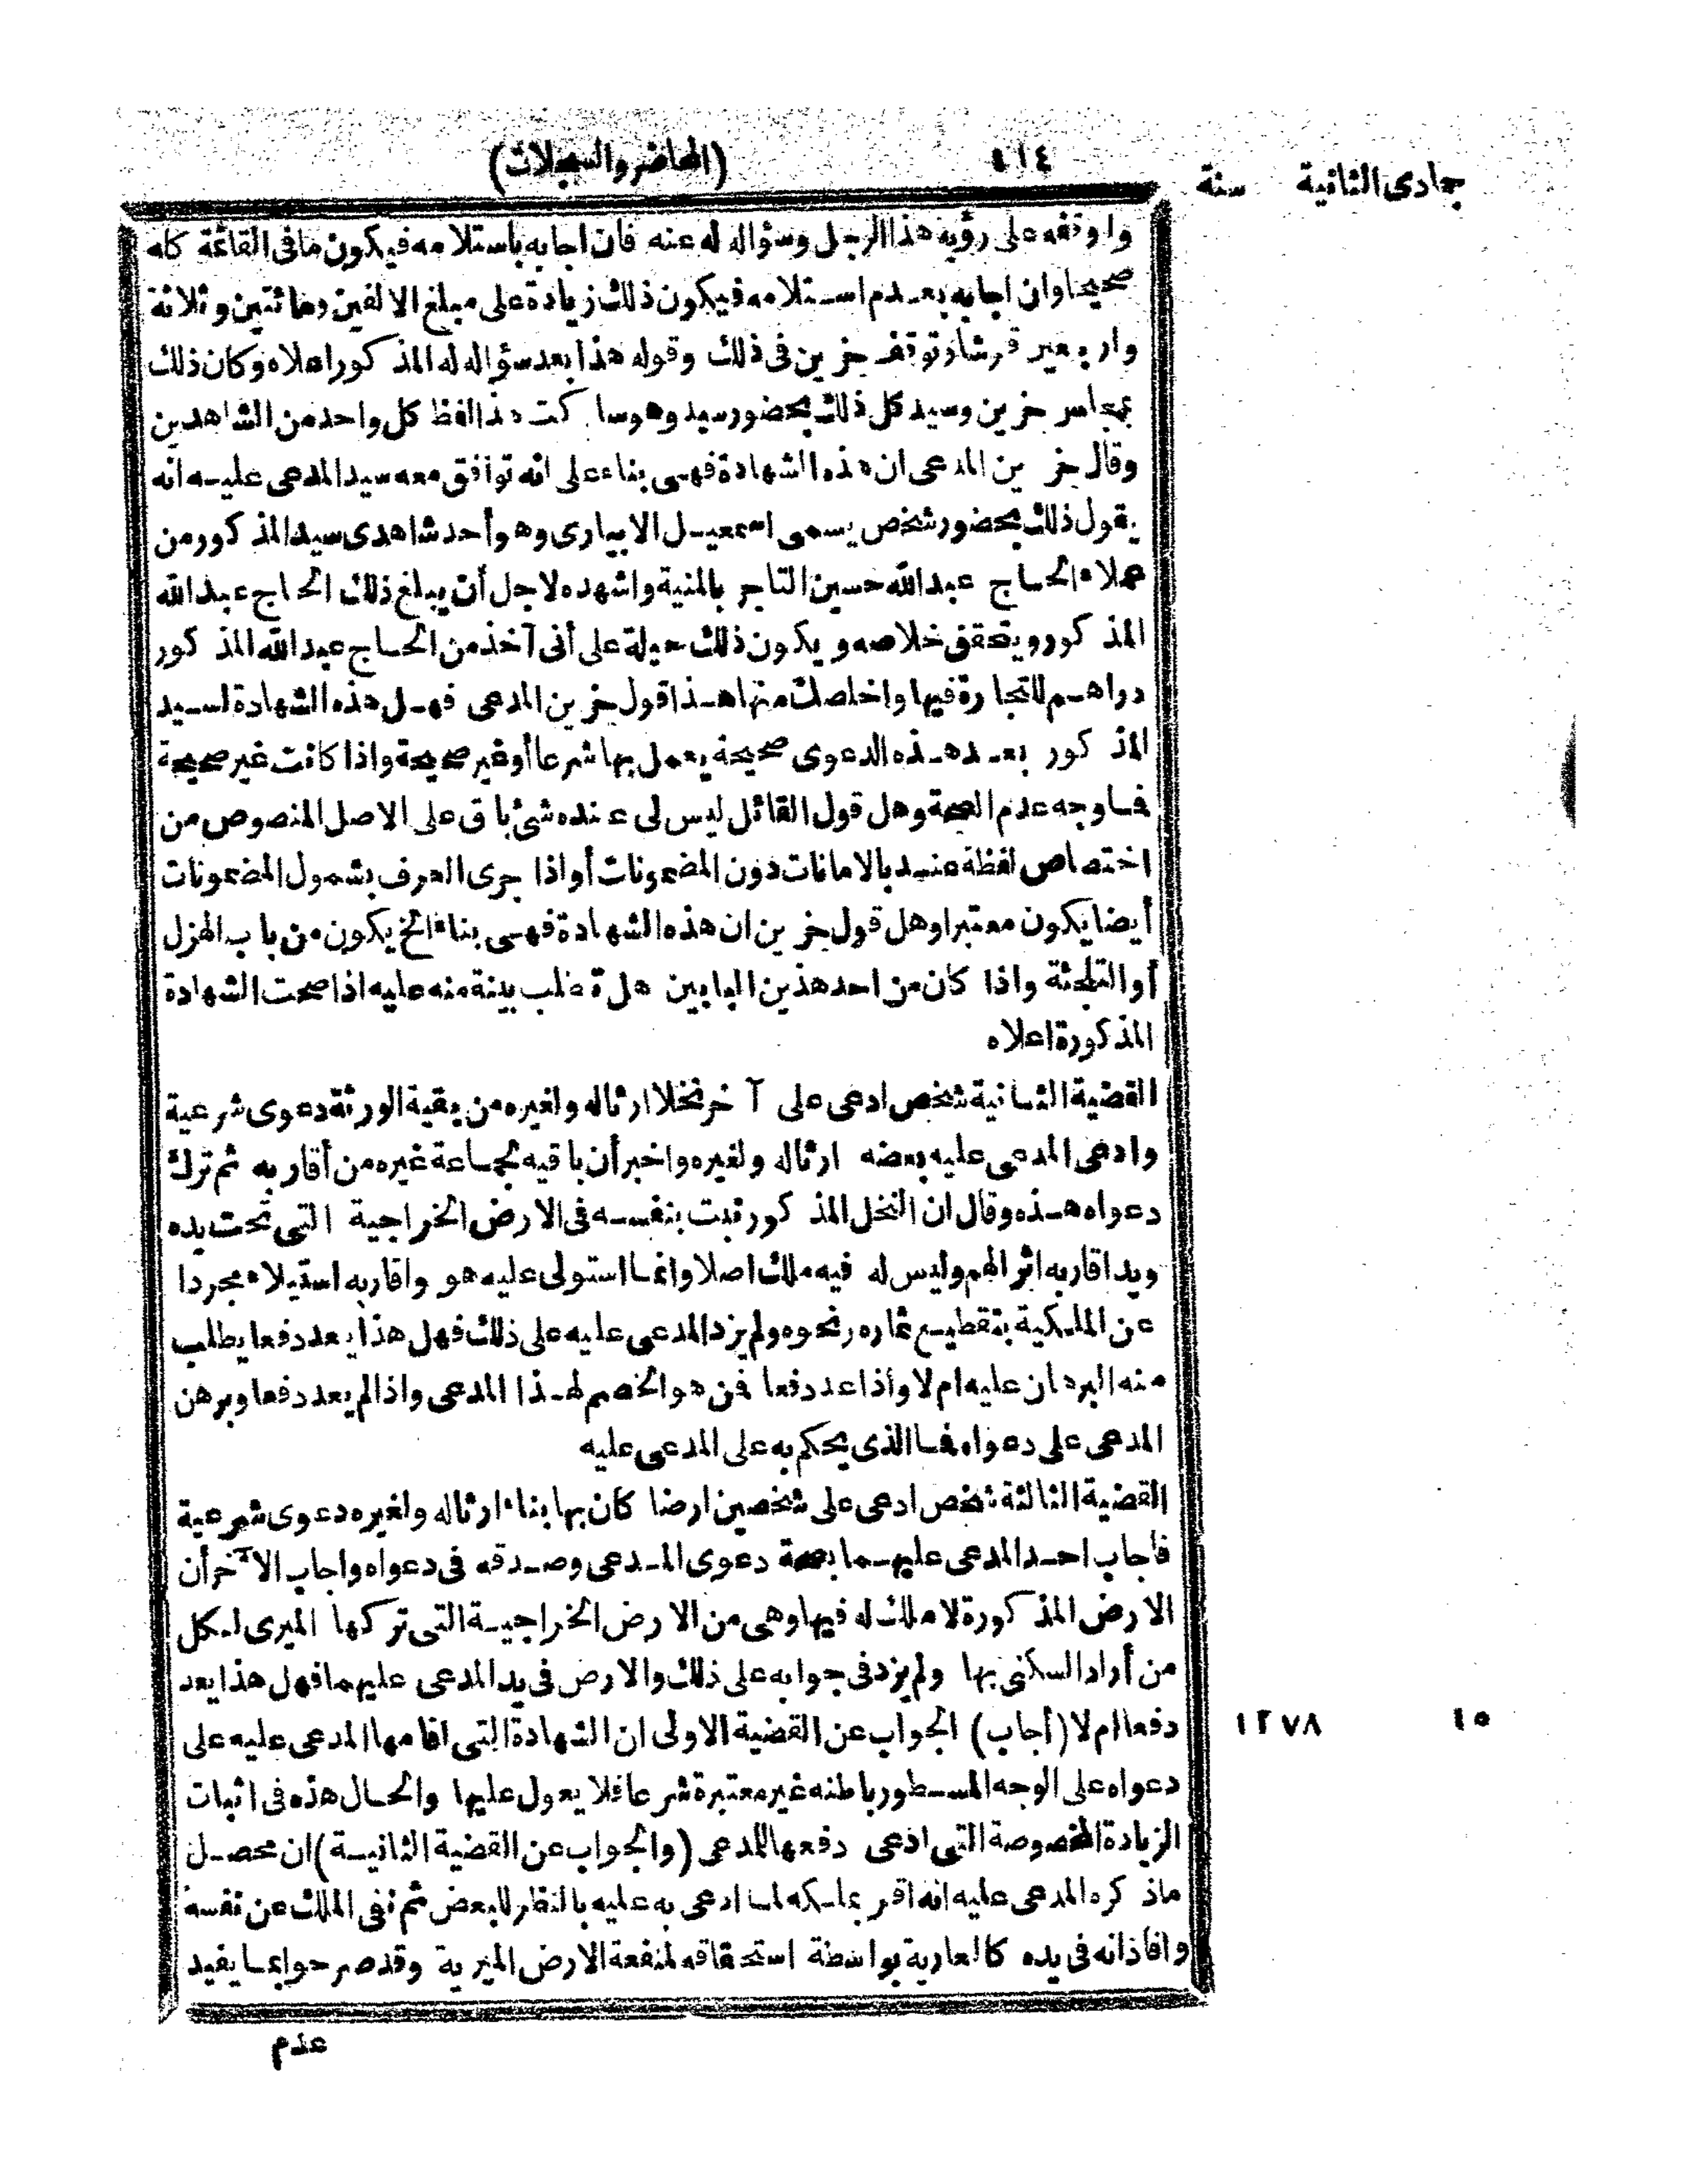 جمادى الثانية سنة
٤١٤ (المحاضر والسجلات)
واوقفه على رؤية هذا الرجل وسؤاله له عنه فان اجابه باستلامه فيكون ما فى القائمة كله
صحيحا وان اجابه بعدم استلامه فيكون ذلك زيادة على مبلغ الالفين ومائتين وثلاثة
واربعين قرشا وتوقف خزين فى ذلك وقوله هذا بعد سؤاله له المذكور اعلاه وكان ذلك
بمجلس خزين وسيد كل ذلك بحضور سيد وهو ساكت هذا لفظ كل واحد من الشاهدين
وقال خزين المدعى ان هذه الشهادة فهى بناء على انه توافق معه سيد المدعى عليه انه
يقول ذلك بحضور شخص يسمى اسمعيل الابيارى وهو أحد شاهدى سيد المذكور من
عملاء الحاج عبد الله حسين التاجر بالمنية واشهده لاجل أن يبلغ ذلك الحاج عبد الله
المذكور ويتحقق خلاصه ويكون ذلك حيلة على أنى آخذ من الحاج عبد الله المذكور
دراهم للتجارة فيها واخلصك منها هذا قول خزين المدعى فهل هذه الشهادة لسيد
المذكور بعد هذه الدعوى صحيحة يعمل بها شرعا أو غير صحيحة واذا كانت غير صحيحة
فما وجه عدم الصحة وهل قول القائل ليس لى عنده شئ باق على الاصل المنصوص من
اختصاص لفظة عند بالامانات دون المضمونات أو اذا جرى العرف بشمول المضمونات
أيضا يكون معتبرا وهل قول خزين ان هذه الشهادة فهى بناء الخ يكون من باب الهزل
أو التلجئة واذا كان من احد هذين البابين هل تطلب بينة منه عليه اذا صحت الشهادة
المذكورة اعلاه
القضية الثانية شخص ادعى على آخر نخلا ارثا له ولغيره من بقية الورثة دعوى شرعية
وادعى المدعى عليه بعضه ارثا له ولغيره واخبر أن باقيه لجماعة غيره من أقاربه ثم ترك
دعواه هذه وقال ان النخل المذكور نبت بنفسه فى الارض الخراجية التى تحت يده
ويد اقاربه اثرا لهم وليس له فيه ملك اصلا وانما استولى عليه هو واقاربه استيلاء مجردا
عن الملكية بتقطيع ثماره ونحوه ولم يزد المدعى عليه على ذلك فهل هذا يعد دفعا يطلب
منه البرهان عليه ام لا واذا عد دفعا فمن هو الخصم لهذا المدعى واذا لم يعد دفعا وبرهن
المدعى على دعواه فما الذى يحكم به على المدعى عليه
القضية الثالثة شخص ادعى على شخصين ارضا كان بها بناء ارثا له ولغيره دعوى شرعية
فاجاب احد المدعى عليهما بصحة دعوى المدعى وصدقه فى دعواه واجاب الآخر أن
الارض المذكورة لا ملك له فيها وهى من الارض الخراجية التى تركها الميرى لكل
من أراد السكنى بها ولم يزد فى جوابه على ذلك والارض فى يد المدعى عليهما فهل هذا يعد
دفعا ام لا (أجاب) الجواب عن القضية الاولى ان الشهادة التى اقامها المدعى عليه على ١٢٧٨ ١٥
دعواه على الوجه المسطور باطنه غير معتبرة شرعا فلا يعول عليها والحال هذه فى اثبات
الزيادة المخصوصة التى ادعى دفعها للمدعى (والجواب عن القضية الثانية) ان محصل
ماذكره المدعى عليه انه اقر بملكه لما ادعى به عليه بالنظر للبعض ثم نفى الملك عن نفسه
وافاد انه فى يده كالعارية بواسطة استحقاقه لمنفعة الارض الميرية وقد صرحوا بما يفيد
عدم